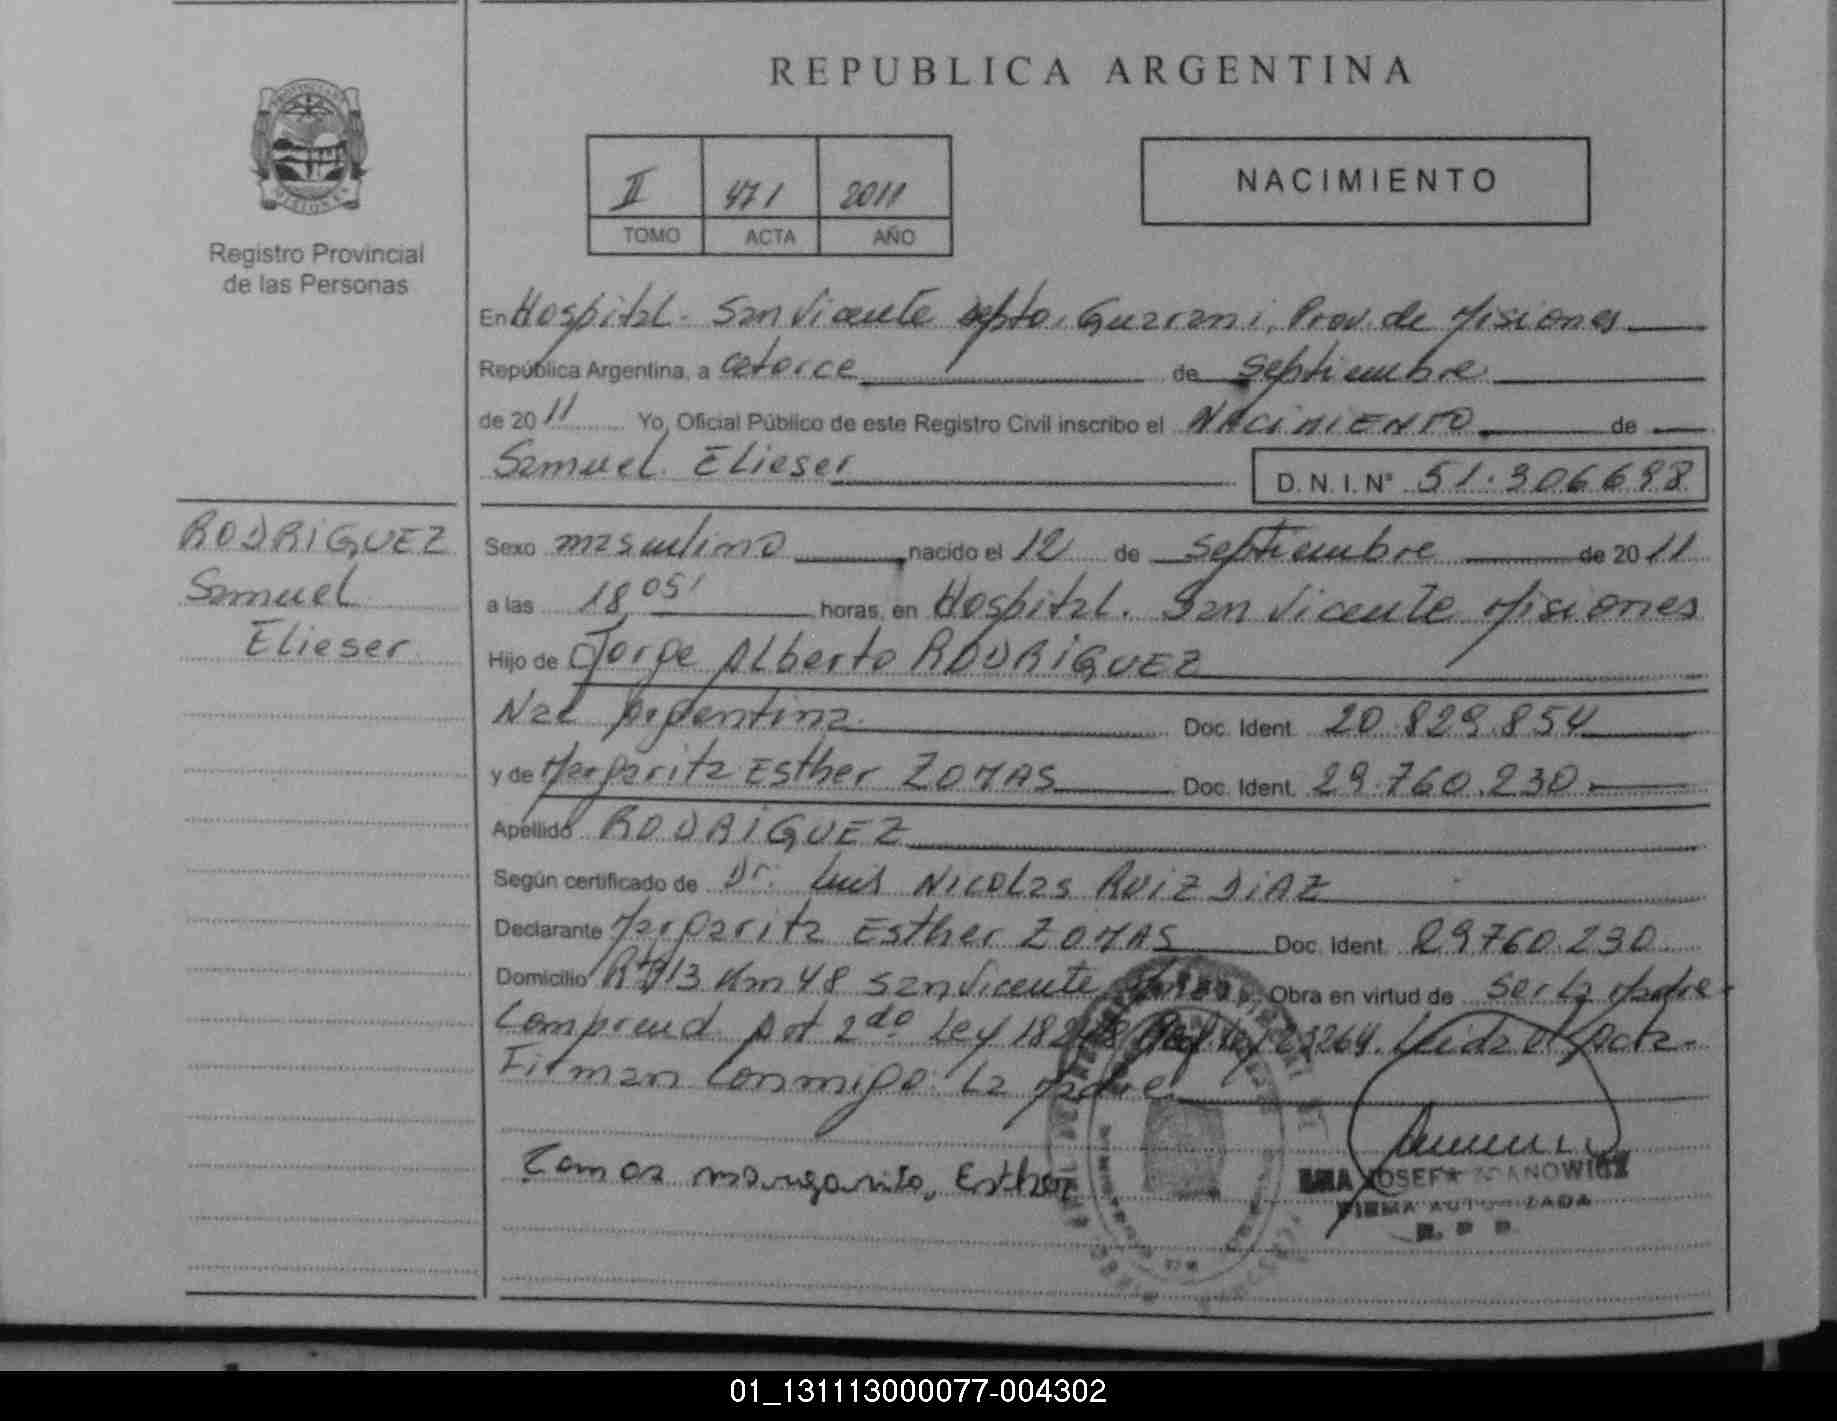 REPUBLICA ARGENTINA
NACIMIENTO
II 471 2011
TOMO ACTA AÑO
Registro Provincial
de las Personas
En Hospital. San Vicente Dpto. Guarani, Prov. de Misiones
República Argentina, a catorce de septiembre
de 2011 Yo, Oficial Público de este Registro Civil inscribo el NACIMIENTO de
Samuel Elieser D.N.I. Nº 51.306698
RODRIGUEZ
Samuel
Elieser
Sexo masculino nacido el 12 de septiembre de 2011
a las 18,05' horas, en Hospital. San Vicente Misiones
Hijo de Jorge Alberto RODRIGUEZ
Nac Argentina Doc. Ident. 20.829.854
y de Margarita Esther ZOMAS Doc. Ident. 29.760.230
Apellido RODRIGUEZ
Según certificado de Dr. Luis Nicolas RUIZ DIAZ
Declarante Margarita Esther ZOMAS Doc. Ident. 29760.230
Domicilio 13 Km 48 San Vicente Obra en virtud de ser la Madre
Comprend Art 2do Ley 18248 23264. Leida el Acta
Firman conmigo la Madre
margarita, Esther
JOSEFA
FIRMA AUTORIZADA
01_131113000077-004302